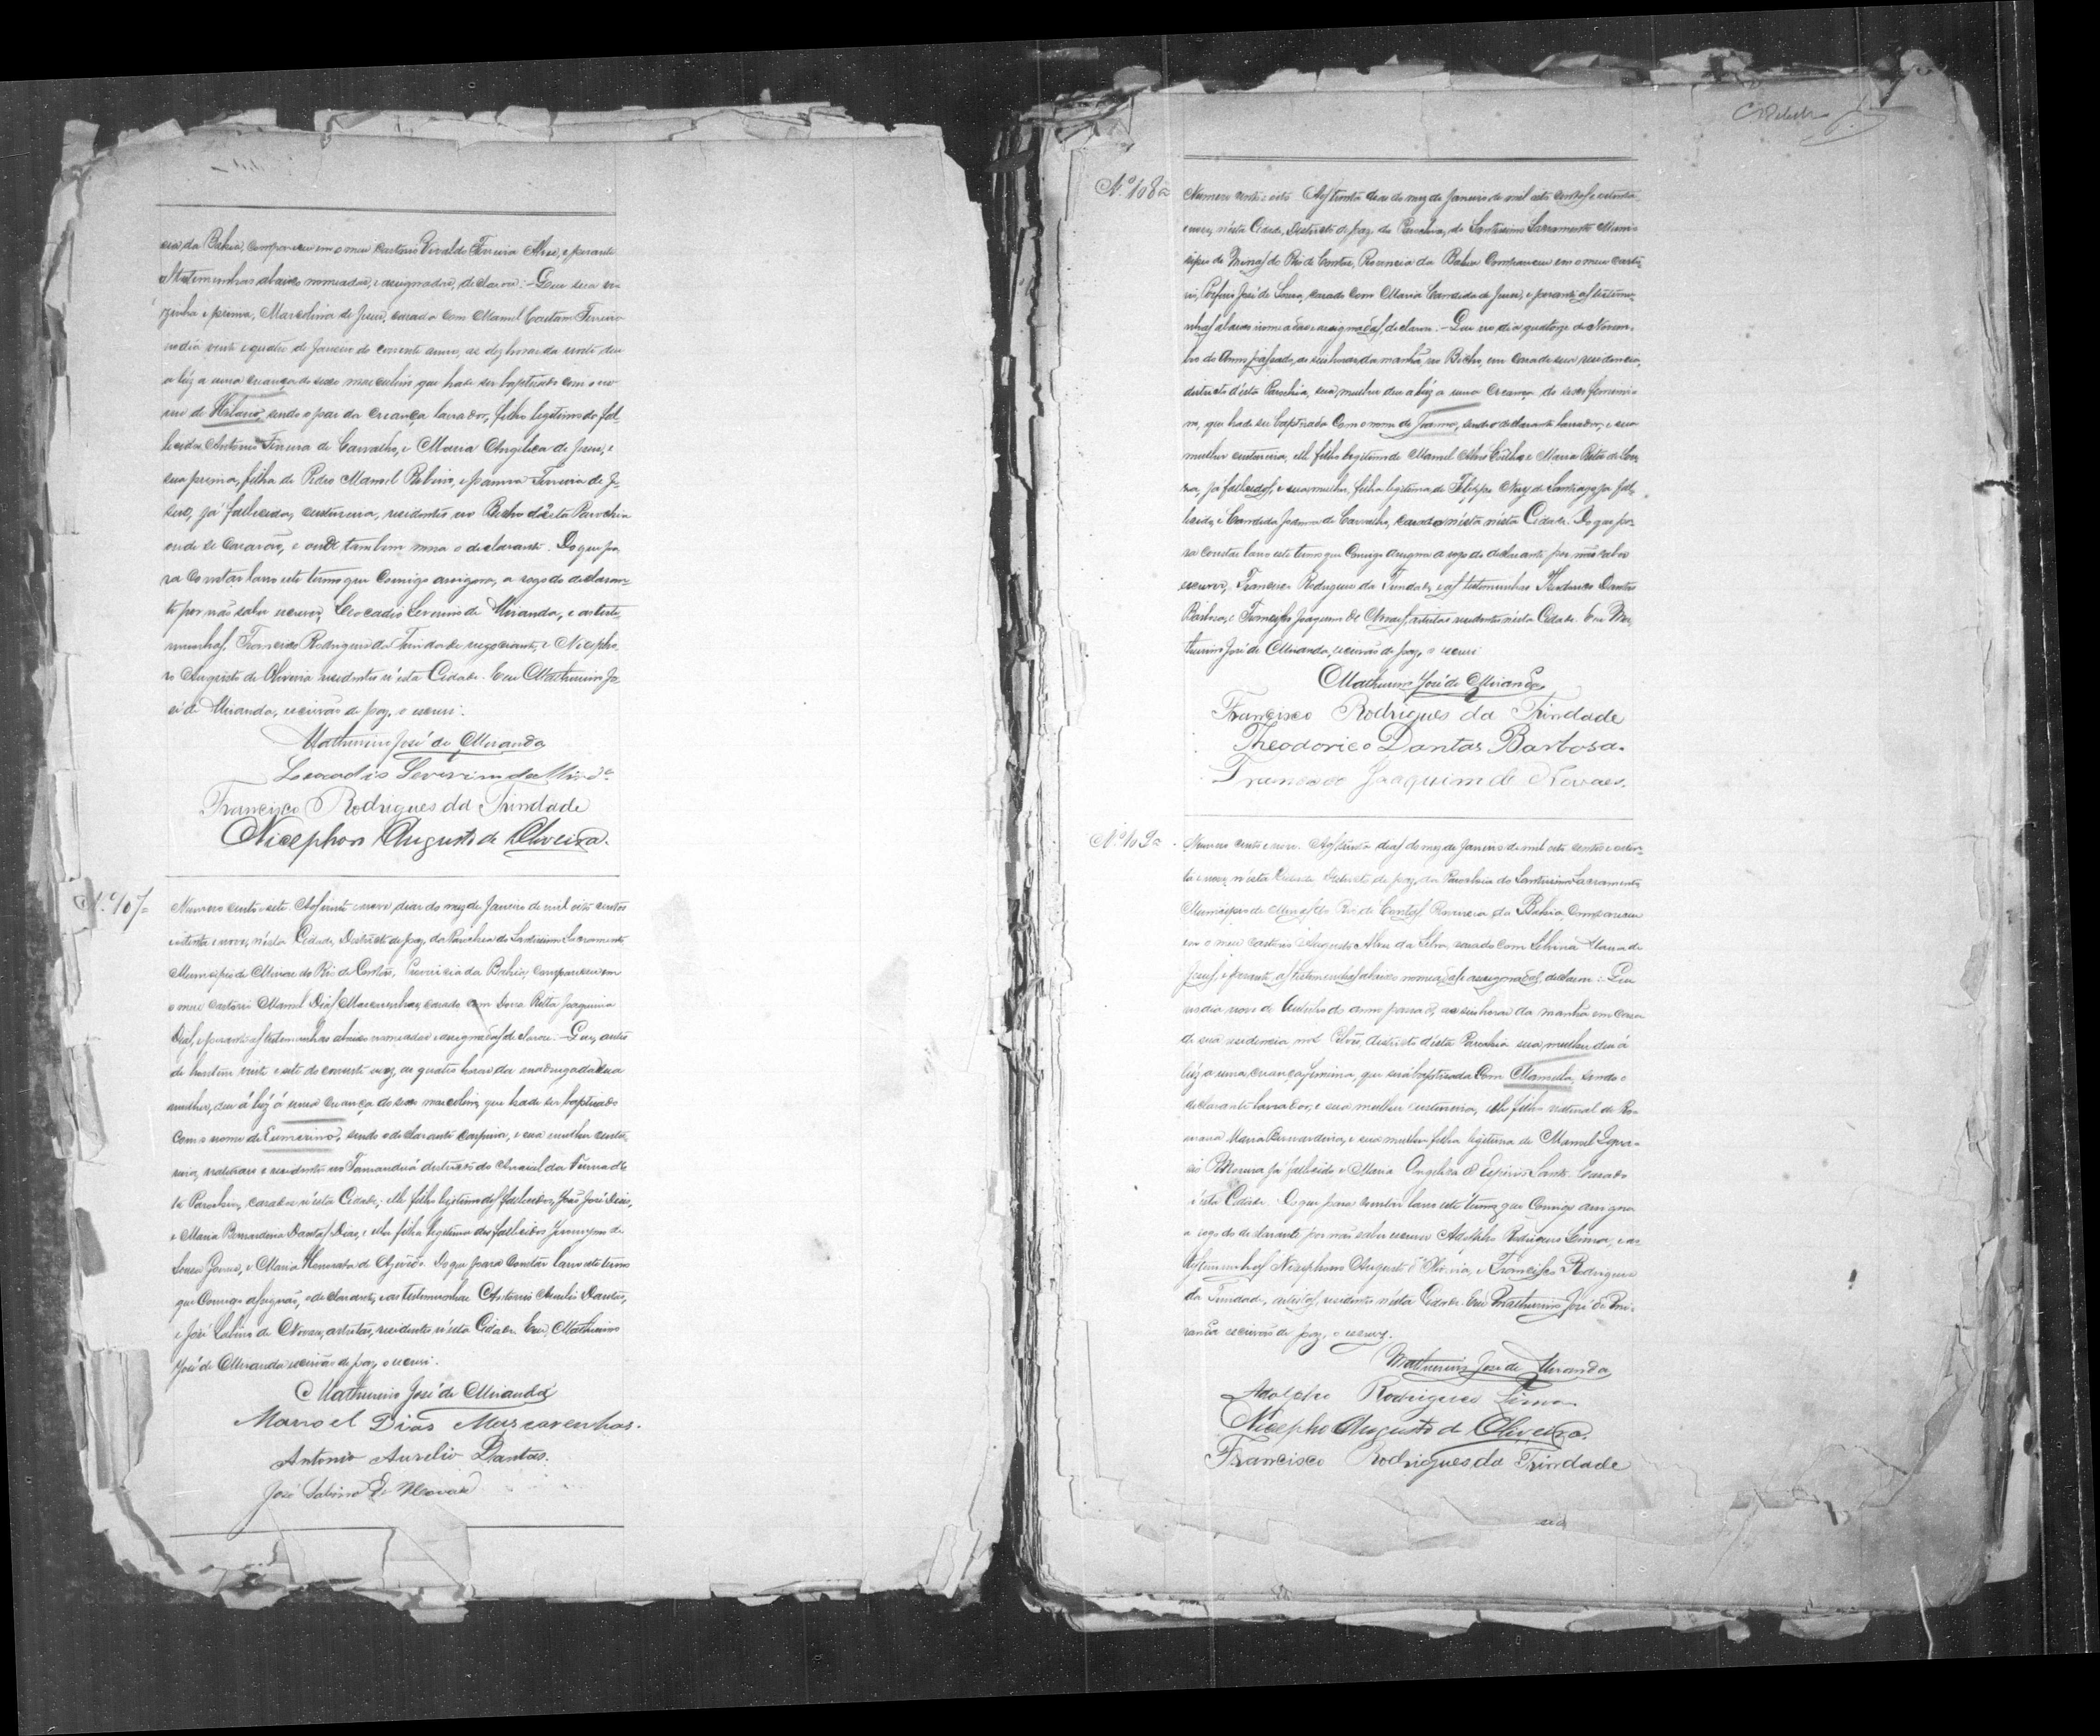 cia da Bahia, compareceu em o meu cartorio Ferreira Alves, e perante
as testemunhas abaixo nomeadas, e assignadas, declarou: - Que sua vi-
zinha e prima, Marcolina de Jesus, casada com Manoel Caetano Ferreira
no dia vente e quatro de Janeiro do corrente anno, as dez horas da noite deu
a lúz a uma criança do sexo masculino que hade ser baptisado com o no-
me de Hilario, sendo o pae da criança lavrador, filho legitimo do fal-
lecidos Antonio Ferreira de Carvalho, e Maria Angelica de Jesus, e
sua prima, filha de Pedro Manoel Ribeiro, e Joanna Ferreira de Je-
sus, já fallecidos, custureira, residentes no Brcho d'esta Parochia
onde se casarão, e onde tambem mora o declarante. Do que pa-
ra constar lavro este termo que comigo assignão, a rogo do declaran-
te por não saber escrever, Leocadio Severino de Miranda, e as teste-
munhas, Francisco Rodrigues da Trindade negociante, e Nicepho-
ro Augusto de Oliveira residentes n'esta Cidade. Eu Mathurino Jo-
sé de Miranda, escrivão de paz, o escrevi.
Mathurino José de Miranda
Leocadio Severino de Mirda
Francisco Rodrigues da Trindade
Nicephoro Augusto de Oliveira.
N. 107=
Numero cento e sete. Aos vinte e nove dias do mez de Janeiro de mil oito centos
e oitenta e nove, n'esta Cidade, Districto de paz, da Parochia do Santissimo Sacramento
Municipio de Minas do Rio de Contas, Provincia da Bahia, compareceu em
o meu cartorio Manoel Dias Mascarenhas, casado com Dona Rita Joaquina
Dias, e perante as testemunhas abaixo nomeadas e assignadas declarou: - Que, antes
de hontem vinte e sete do corrente mez, as quatro horas da madrugada sua
mulher, deu á lúz á uma criança do sexo masculino, que hade ser baptisado
com o nome de Eumerino, sendo o declarante carpina, e sua mulher custu-
reira, naturaes e residentes no Tamanduá districto do Arraial da Furna d'es-
ta Parochia, casados n'esta Cidade; elle filho legitimo dos fallecidos, João José Dias,
e Maria Bernardina Dantas Dias, e ella filha legitima dos fallecidos Jeronymo de
Souza, e Maria Honorata de Azevêdo. Do que para constar lavro este termo
que comigo assignão, o declarante, e as testemunhas Antonio Aurelio Dantas,
e José Sabino de Novaes, artistas, residentes n'esta Cidade. Eu, Mathurino
José de Miranda escrivão de paz, o escrevi.
Mathurino José de Miranda
Manoel Dias Mascarenhas.
Antonio Aurelio Dantas.
José Sabino de Novaes
Nº 108=
Numero cento e oito. Aos trinta dias do mez de Janeiro de mil oito centos e oitenta
e nove, n'esta Cidade, Districto de paz, da Parochia, do Santissimo Sacramento Muni-
cipio de Minas do Rio de Contas, Provincia da Bahia Compareceu em o meu carto-
rio, José de Souza, casado com Maria Candida de Jesus, e perante as testemu-
nhas abaixo nomeadas e assignadas, declarou: - Que no dia quatorze de Novem-
bro do Anno passado, as seis horas da manhã, no Brcho, em casa de sua residencia,
districto d'esta Parochia, sua mulher deu a lúz a uma creança do sexo femini-
no, que hade ser baptisada com o nome de Joanna, sendo o declarante lavrador, e sua
mulher custureira, elle filho legitimo de Manoel Alves Coêlho e Maria Rita de Sou-
za, já fallecidos, e sua mulher, filha legitima de Filippe Nery de Santiago já fal-
lecido, e Candida Joanna de Carvalho, casados n'esta Cidade. Do que pa-
ra constar lavro este termo que comigo assigna a rogo do declarante por não saber
escrever, Francisco Rodrigues da Trindade, e as testemunhas Theodorico Dantas
Barbosa, e Francisco Joaquim de Novaes, artistas residentes n'esta Cidade. Eu Ma-
thurino José de Miranda, escrivão de paz, o escrevi.
Mathurino José de Miranda
Francisco Rodrigues da Trindade
Theodorico Dantas Barbosa.
Francisco Joaquim de Novaes.
Nº 109=
Numero cento e nove. Aos trinta dias do mez de Janeiro de mil oito centos e oiten-
ta e nove, n'esta Cidade Districto de paz, da Parochia do Santissimo Sacramento,
Municipio de Minas do Rio de Contas, Provincia da Bahia, Compareceu
em o meu cartorio Augusto Alves da Silva, casado com Maria de
Jesus, e perante, as testemunhas abaixo nomeadas e assignadas, declarou: Que
no dia nove de Outubro do anno passado, as seis horas da manhã em casa
de sua residencia, districto d'esta Parochia sua mulher deu á
lúz a uma criança feminina, que será baptisada com Manuella, sendo o
declarante lavrador, e sua mulher custureira, elle filho natural de Ro-
mana Maria Bernardina, e sua mulher filha legitima de Manoel Igna-
cio já fallecido e Maria Angelica do Espirito Santo. Casado
n'esta Cidade. Do que para constar lavro este termo que comigo assigna
a rogo do declarante por não saber escrever Adolpho Rodrigues Lima, e as
testemunhas Nicephoro Augusto d'Oliveira, e Francisco Rodrigues
da Trindade, artistas, residentes n'esta Cidade. Eu Mathurino José de Mi-
randa escrivão de paz, o escrevy.
Mathurino José de Miranda
Adolpho Rodrigues Lima
Nicepho Augusto de Oliveira.
Francisco Rodrigues da Trindade